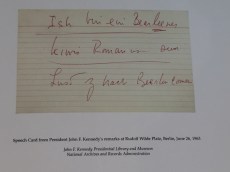 Ish bin ein Bearleener
kiwis Romanus sum
nach Bearlin comen
Speech Card from President John F. Kennedy's remarks at Rudolf Wilde Platz, Berlin, June 26, 1963.
John F. Kennedy Presidential Library and Museum
National Archives and Records Administration